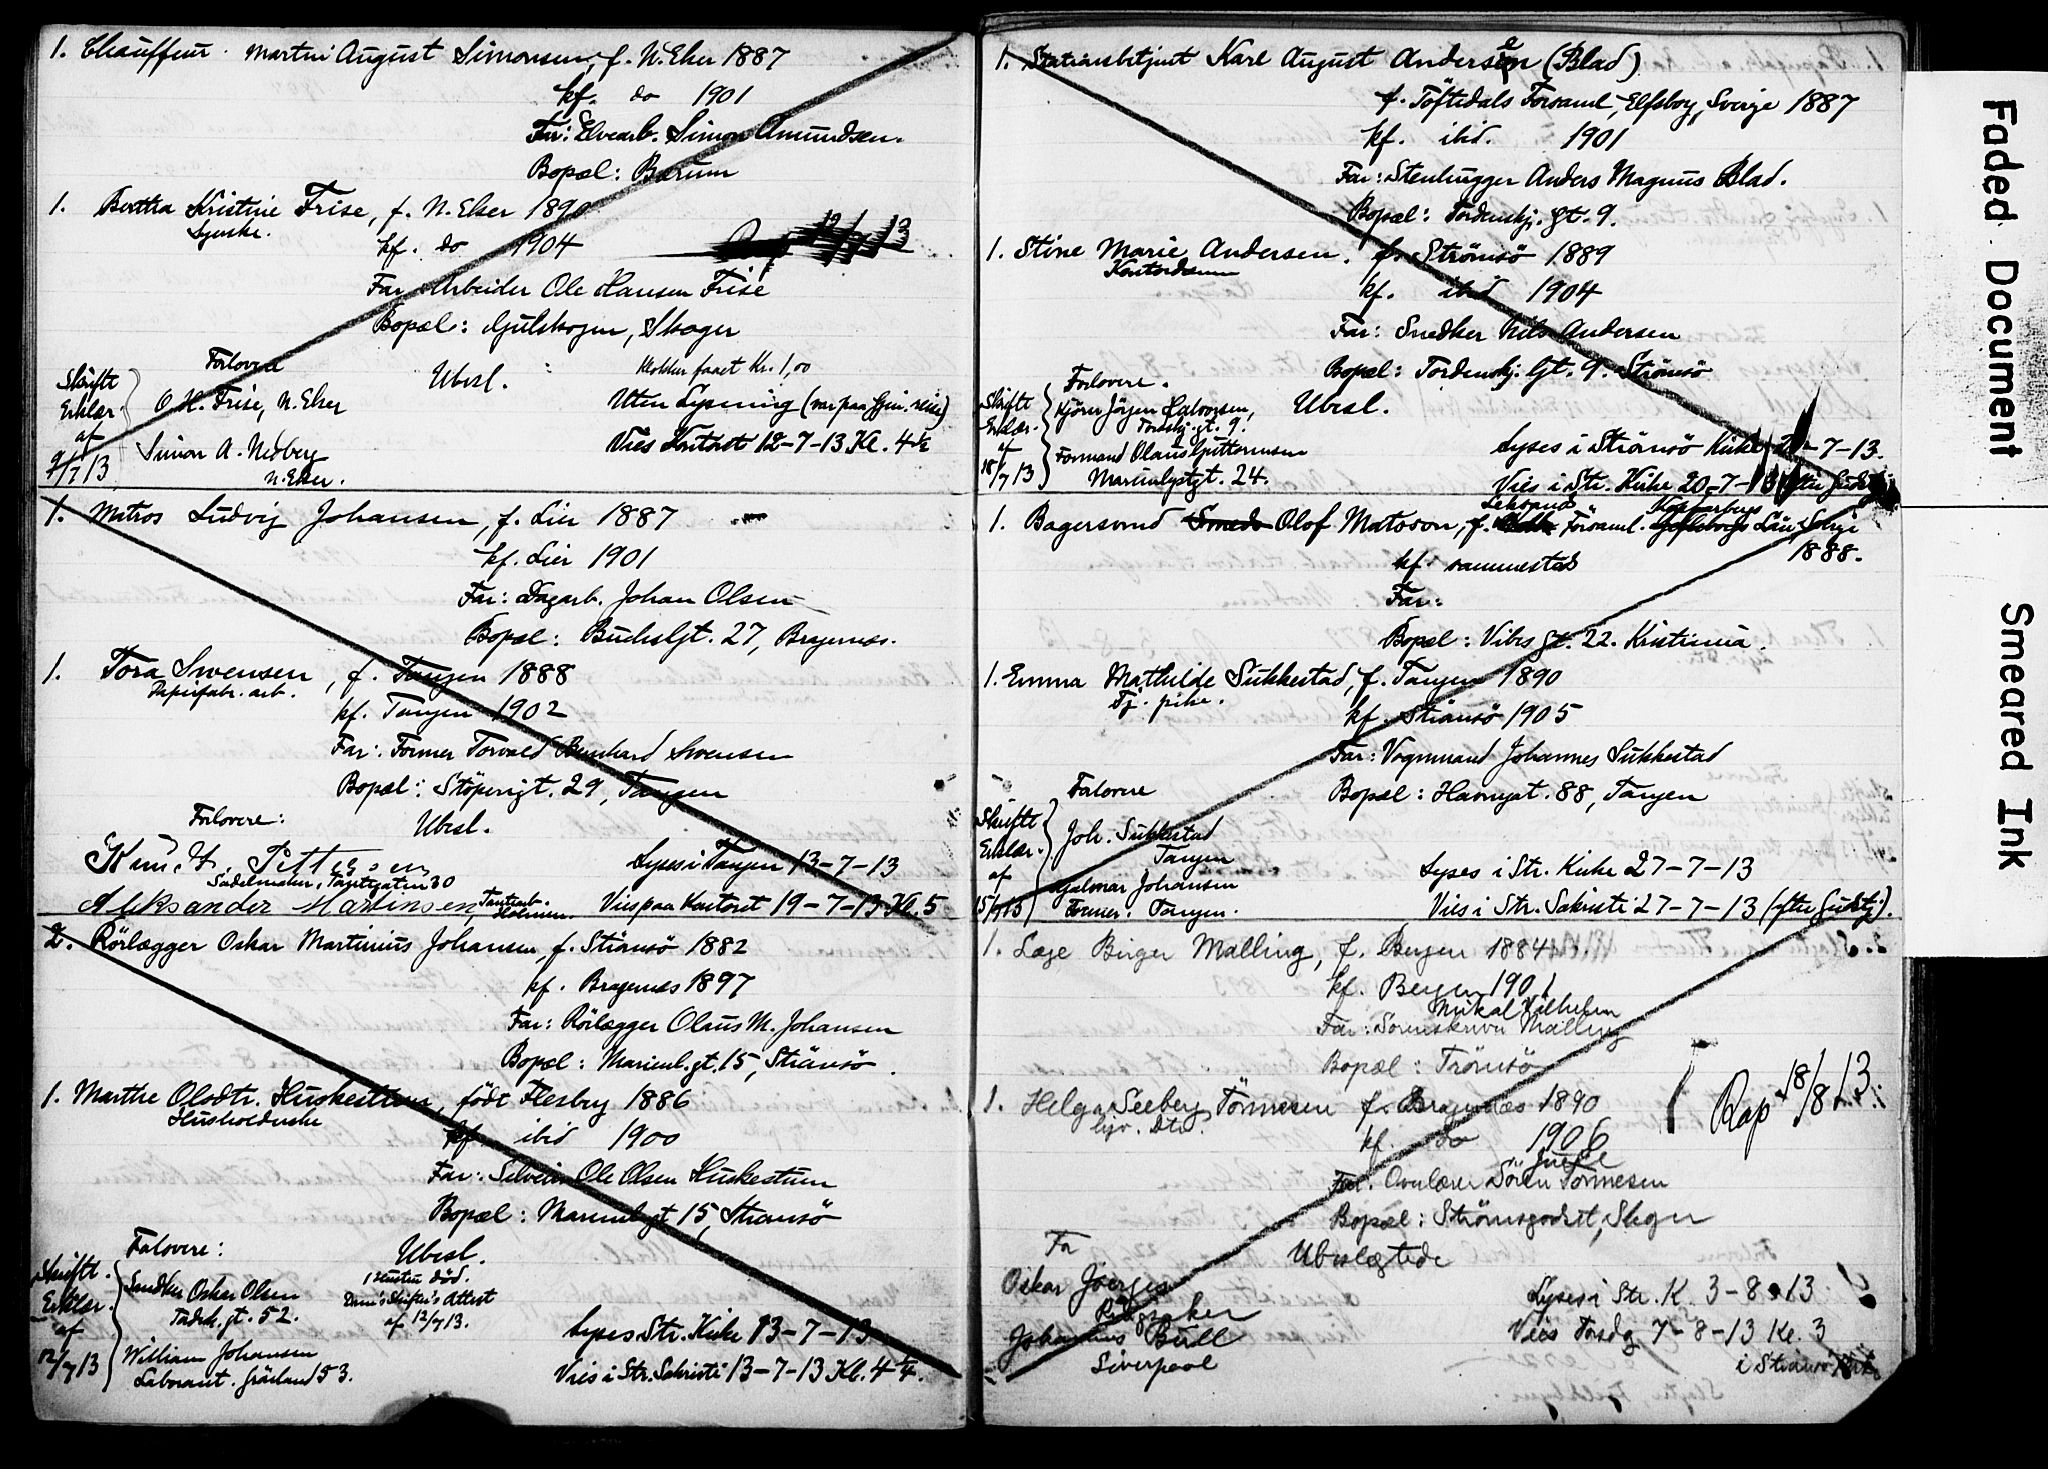 1. Chauffeur. Martin August Simonsen, f. N. Eker 1887
kf. do 1901
Far: Elvearb. Simon Amundsen.
Bopæl: Bærum
1. Bertha Kristine Frise, f. N. Eker 1890
Syerske.
kf. do 1904
Far Arbeider Ole Hansen Frise
Bopæl: Gulskogen, Skoger
Forlovere
Ubesl.
Klokker faaet Kr. 1,00
Skriftl. Erklær. af 9/7 13
O. H. Frise, N. Eker
Uten Lysning (var paa
Simon A. Nedberg
N. Eker.
Vies Kontoret 12-7-13 Kl. 4½
1. Matros Ludvig Johansen, f. Lier 1887
kf. Lier 1901
Far: Dagarb. Johan Olsen
Bopæl: Buchs Gt. 27, Bragernæs.
1. Tora Svensen, f. Tangen 1888
Papirfabr. arb.
kf. Tangen 1902
Far: Former Torvald Bernhard Svensen
Bopæl: Støperigt. 29, Tangen
Forlovere:
Ubesl.
Knut Pettersen
Sadelmaker, Tangegaten 30
Lyses i Tangen 13-7-13
Aleksander Martinsen
Holmen
Vies paa Kontoret 19-7-13 Kl. 5
2. Rörlægger Oskar Martinius Johansen, f. Strömsö 1882
kf. Bragernæs 1897
Far: Rörlægger Olaus M. Johansen
Bopæl: Marienl. gt. 15, Strömsö.
1. Marthe Olsdtr. Huskestuen, født Flesberg 1886
Husholderske
kf. ibid 1900
Far: Selveier Ole Olsen Huskestuen
Bopæl: Marienl. gt 15, Strömsö
Forlovere:
Ubesl.
1 Hustru død.
Skriftl. Erklær. af 12/7 13
Snedker Oskar Olsen
Tordsk. gt. 52.
Skifte's Attest
af 12/7 13.
Lyses Str. Kirke 13-7-13
William Johansen
Laborant. Grönland 53.
Vies i Str. Sakristi 13-7-13 Kl. 4 ¼.
1. Stationsbetjent Karl August Andersen (Blad)
f. Töftedals Forsaml., Elfsborg, Sverige 1887
kf. ibid. 1901
Far: Stenhugger Anders Magnus Blad.
Bopæl: Tordenskj. gt. 9.
1. Stine Marie Andersen. f. Strömsö 1889
Kontordame
kf. ibid 1904
Far: Snedker Nils Andersen
Bopæl: Tordenskj. Gt. 9. Strömsö
Forlovere.
Ubesl.
Skriftl. Erklær. af 18/7 13
Kjörer Jörgen Halvorsen,
Tordskj. gt. 9.
Formand Olaus Guttormsen
Marienlystgt. 24.
Lyses i Strömsö Kirke 20-7-13.
Vies i Str. Kirke 20-7-13
1. Bagersvend Olof Matsson, f. Leksand Församl. Kopparbergs Län, Sverige
1888.
kf. sammested
Far:
Bopæl: Vibes Gt. 22. Kristiania.
1. Emma Mathilde Sukkestad, f. Tangen 1890
Tj. pike.
kf. Strömsö 1905
Far: Vognmand Johannes Sukkestad
Bopæl: Havnegt. 88, Tangen
Forlovere
Skriftl. Erklær. af 15/7 13
Joh. Sukkestad
Tangen
Hjalmar Johansen
Former. Tangen.
Lyses i Str. Kirke 27-7-13
Vies i Str. Sakristi 27-7-13 (efter Gudstj).
1. Læge Birger Malling, f. Bergen 1884
kf. Bergen 1901
Mikal Vilhelm
Far: Sorenskriver Malling
Bopæl: Tromsö
1. Helga Seeberg Tönnesen f. Bragernæs 1890
kf. do 1906
Far. Overlærer Sören Tönnesen
Bopæl: Strömsgodset, Skoger
Rap 18/8 13.
Fo
Ubeslægtede
Oskar Joerges
Lyses i Str. K. 3-8-13
Johannes Bull
Liverpool
Vies Torsdg 7-8-13 Kl. 3
i Strömsö Kirke
Faded Document
Smeared Ink